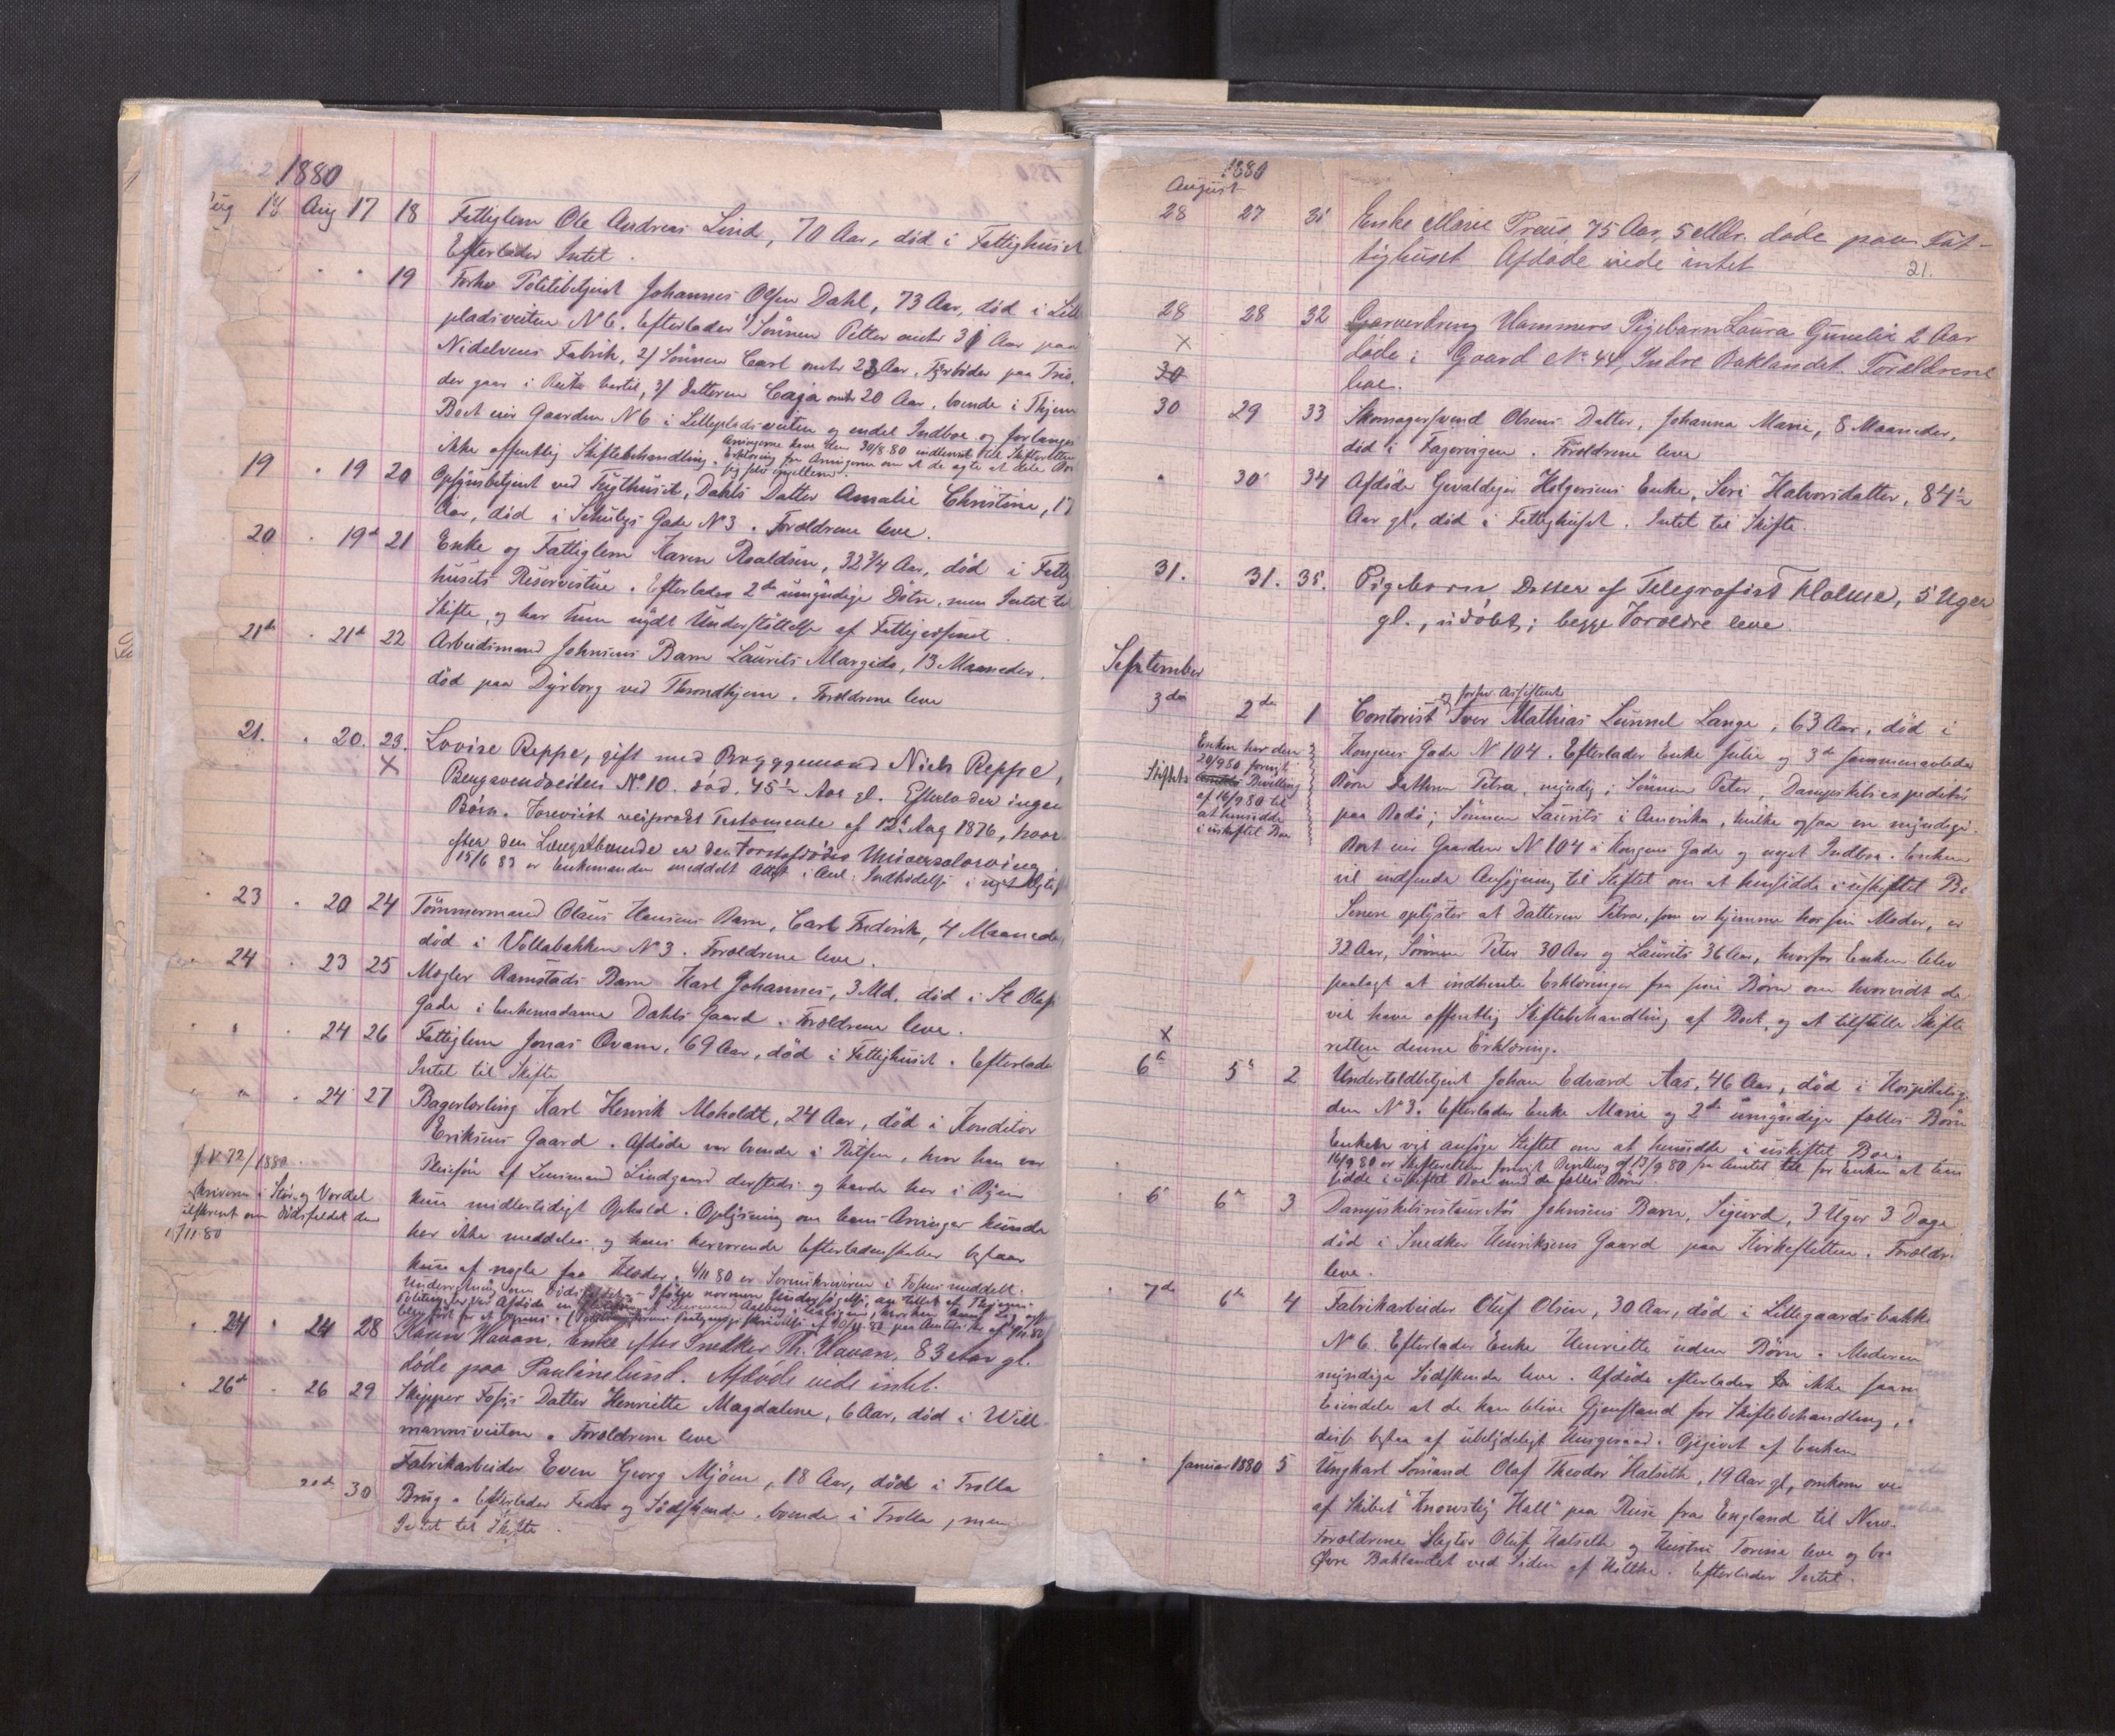 1880
Aug 18 Aug 17 18 Fattiglem Ole Andreas Lind, 70 Aar, död i Fattighuset
Efterlader Intet.
" " 19 Forhv Politibetjent Johannes Olsen Dahl, 73 Aar, död i Lille
pladsveiten N 6. Efterlader 1/ Sönnen Petter omtr 31 Aar paa
Nidelvens Fabrik, 2/ Sönnen Carl omtr 23 Aar, Fyrböder paa
der gaar i Rute hertil, 3/ Datteren Caja omtr 20 Aar, boende i Thjem
Boet eier Gaarden N 6 i Lillepladsveiten og endel Indboe og forlanges
ikke offentlig Skiftebehandling. Arvingerne have den 30/8 80 indleveret til Skifteretten
Erklæring fra Arvingerne om at de agte at dele Boet
sig selv imellem
19 " 19 20 Opsynsbetjent ved Tugthuset, Dahls Datter Amalie Christine, 17
Aar, död i Schultz Gade N 3. Forældrene leve.
20 " 19d 21 Enke og Fattiglem Karen Roaldsen, 32 3/4 Aar, död i Fattig
husets Reservestue. Efterlader 2de umyndige Dötre, men Intet til
Skifte, og har hun nydt Understöttelse af Fattigvæsenet.
21de " 21d 22 Arbeidsmand Johnsens Barn Laurits Margido, 13 Maaneder,
död paa Dyrborg ved Throndhjem. Forældrene leve
21. " 20. 23. Lovise Reppe, gift med Bryggemand Niels Reppe,
X Bengsvendveiten No 10. död. 45 1/2 Aar gl. Efterlader ingen
Börn. Forevist reciprokt Testamente af 12t Aug 1876, hvor-
efter den Længstlevende er den Förstafdödes Universalarving.
15/6 83 er Enkemanden meddelt Attest i Anl. Indtrædelse i nyt Ægtesk
23 " 20 24 Tömmermand Olaus Hansens Barn, Carl Fredrik, 4 Maaneder
död i Vollabakken N 3. Forældrene leve.
24 " 23 25 Mægler Ramstads Barn Karl Johannes, 3 Md. död i St Olafs
Gade i Enkemadame Dahls Gaard. Forældrene leve.
" " " 24 26 Fattiglem Jonas Qvam, 69 Aar, död i Fattighuset. Efterlader
Intet til Skifte
" " " 24 27 Bagerlærling Karl Henrik Moholdt, 24 Aar, död i Konditor
Eriksens Gaard. Afdöde var boende i Ritsen, hvor han var
Pleiesön af Lensmand Lindgaard dersteds og havde her i Byen
kun midlertidigt Ophold. Oplysning om hans Arvinger kunde
her ikke meddeles og hans herværende Efterladenskaber bestaar
kun af nogle faa Klæder. 4/11 80 er Sorenskriveren i Fosen meddelt
Underretning om Dödsfaldet.
J. N 72/1880.
skriveren i Stör og Værdal
tilskrevet om Dödsfaldet den
1 /11 80
" 24 " 24 28 Karen Havan, Enke efter Snedker Th. Havan, 83 Aar gl.
döde paa Paulinelund. Afdöde eiede intet.
" 26d " 26 29 Skipper Datter Henriette Magdalene, 6 Aar, död i Will-
mannsveiten. Forældrene leve
Fabrikarbeider Even Georg Mjöen, 18 Aar, död i Trolla
30 Brug. Efterlader Fader og Södskende, boende i Trolla, men
Intet til Skifte.
1880
August
28 27 31 Enke Marie Preus, 75 Aar, 5 Mdr. döde paa Fat-
tighuset Afdöde eiede intet
21.
28 28 32 Garversvend Hammers Pigebarn Laura Gunelia 2 Aar
X döde i Gaard No 44, Indre Baklandet. Forældrene
30 leve.
30 29 33 Skomagersvend Olsens Datter, Johanna Marie, 8 Maaneder,
död i Fagervigen. Forældrene leve
" 30 34 Afdöde Gevaldiger Holgersens Enke, Siri Halvorsdatter, 84 1/2
Aar gl, död i Fattighuset. Intet til Skifte.
31. 31. 35. Pigebarn Datter af Telegrafist Holme, 5 Uger
gl., udöbt; begge Forældre leve.
September
og forhv Assistent
3die 2den 1 Contorist Iver Mathias Lunnel Lange, 63 Aar, död i
Kongens Gade N 104. Efterlader Enke Julie og 3de sammenavlede
Börn Datteren Petra, myndig; Sönnen Peter, Dampskibsexpeditör
paa Bodö; Sönnen Laurits i Amerika, hvilke ogsaa ere myndige
Boet eier Gaarden N 104 i Kongens Gade og noget Indboe. Enken
vil indsende Ansögning til Stiftet om at hensidde i uskiftet Bo
Senere oplystes at Datteren Petra, som er hjemme hos sin Moder, er
32 Aar, Sönnen Peter 30 Aar og Laurits 36 Aar, hvorfor Enken blev
paalagt at indhente Erklæringer fra sine Börn om hvorvidt de
vil have offentlig Skiftebehandling af Boet, og at tilstille Skifte
retten denne Erklæring.
Enken har den
20/9 80 forevist
Stiftets Bevilling
af 16/9 80 til
at hensidde
i uskiftet Boe
X
6te 5te 2 Undertoldbetjent Johan Edvard Aas, 46 Aar, död i Hospitalsga
den N 3. Efterlader Enke Marie og 2de umyndige fælles Börn
Enken vil ansöge Stiftet om at hensidde i uskiftet Boe.
16/9 80 er Skifteretten forevist Bevilling af 13/9 80 fra Amtet til for Enken at hen
sidde i uskiftet Boe med de fælles Börn.
" 6 6te 3 Dampskibsrestauratör Johnsens Barn, Sigurd, 3 Uger 3 Dage
död i Snedker Henriksens Gaard paa Kirkesletten. Forældre
leve.
" 7de 6te 4 Fabrikarbeider Oluf Olsen, 30 Aar, död i Lillegaardsbakke
N 6. Efterlader Enke Henriette uden Börn. Moderen
myndige Södskende leve. Afdöde efterlader ikke saam
Eiendele at de kan blive Gjenstand for Skiftebehandling,
disse bestaa af ubetydeligt Husgeraad. Opgivet af Enken
" " Januar 1880 5 Ungkarl Sömand Olaf Theodor Halseth, 19 Aar gl, omkom ve
af Skibet "Knowsley Hall" paa Reise fra England til New-
Forældrene Slagter Oluf Halseth og Hustru Torine leve og bo
Övre Baklandet ved Siden af Holtke. Efterlader Intet.